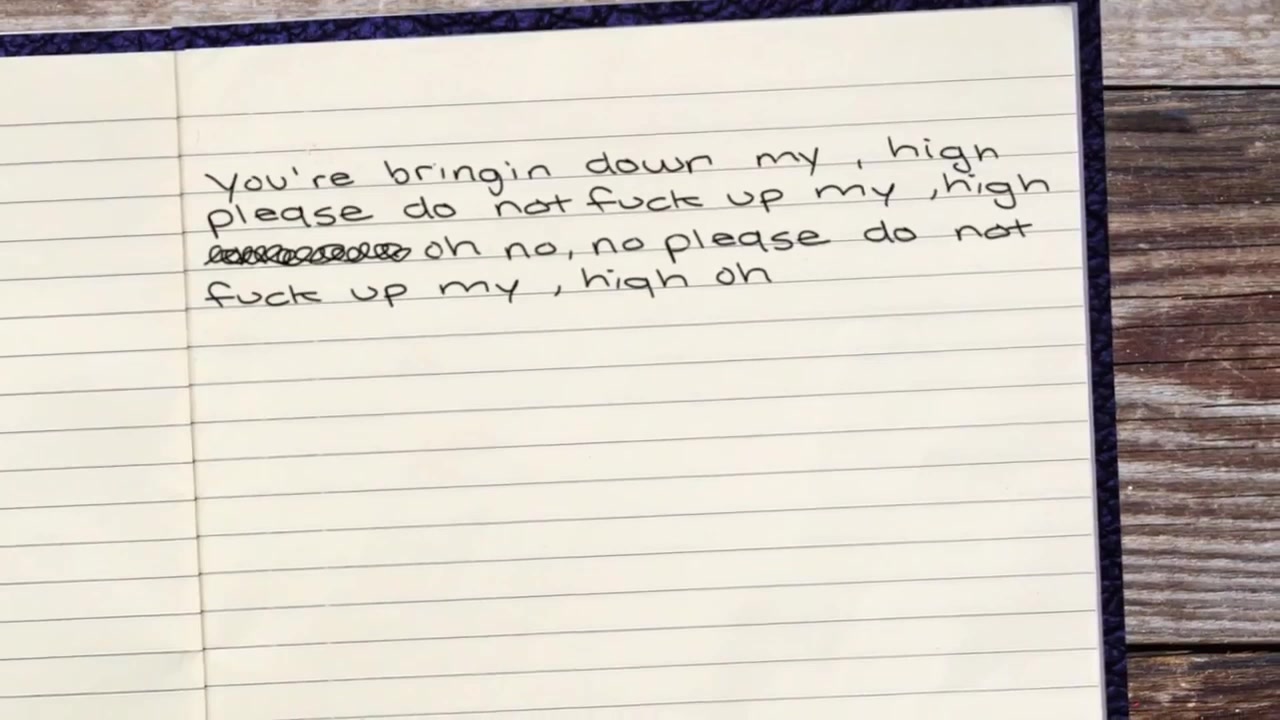 You're bringin down my , high
please do not fuck up my ,high
oh no, no please do not
fuck up my , high oh